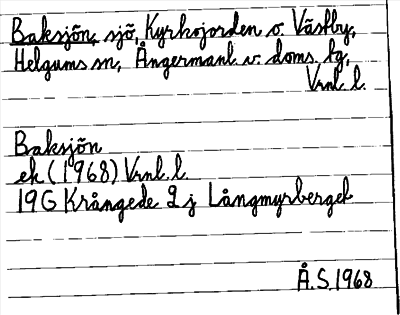 Baksjön, sjö, Kyrkojorden o. Västby,
Helgums sn, Ångermanl. v. doms. tg,
Vrnl. l.
Baksjön
ek (1968) Vrnl. l.
19G Krångede 2 j Långmyrberget
Å.S. 1968